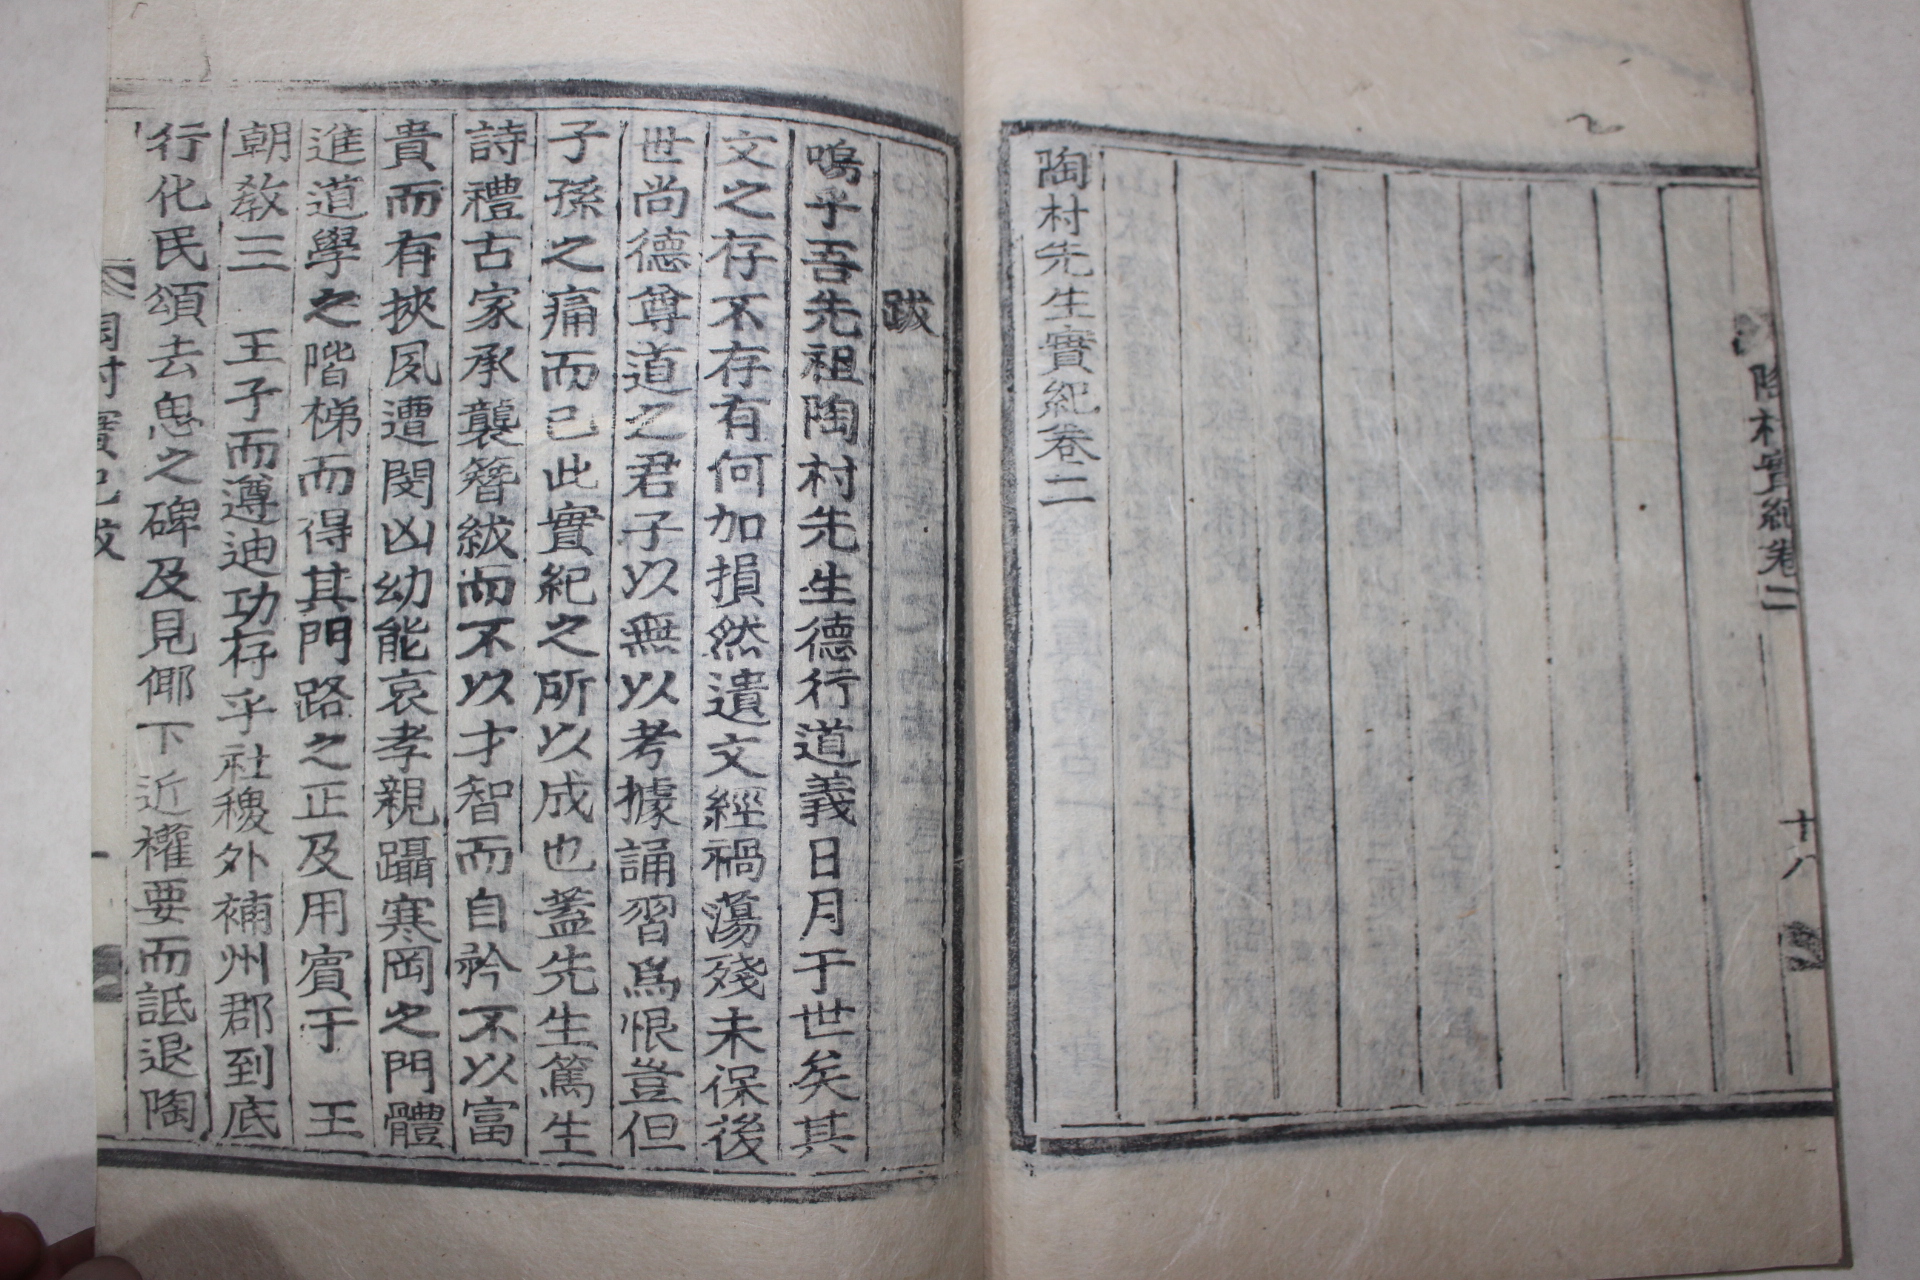 陶村實紀卷二
十八
陶村先生實紀卷二
跋
嗚乎吾先祖陶村先生德行道義日月于世矣其
文之存不存有何加損然遺文經禍蕩殘未保後
世尚德尊道之君子以無以考據誦習爲恨豈但
子孫之痛而已此實紀之所以成也蓋先生篤生
詩禮古家承襲簪紱而不以才智而自矜不以富
貴而有挾夙遭閔凶幼能哀孝親躡寒岡之門體
進道學之階梯而得其門路之正及用賓于 王
朝敎三 王子而遵迪功存乎社稷外補州郡到底
行化民頌去思之碑及見鄕下近權要而詆退陶
陶村實紀跋
一